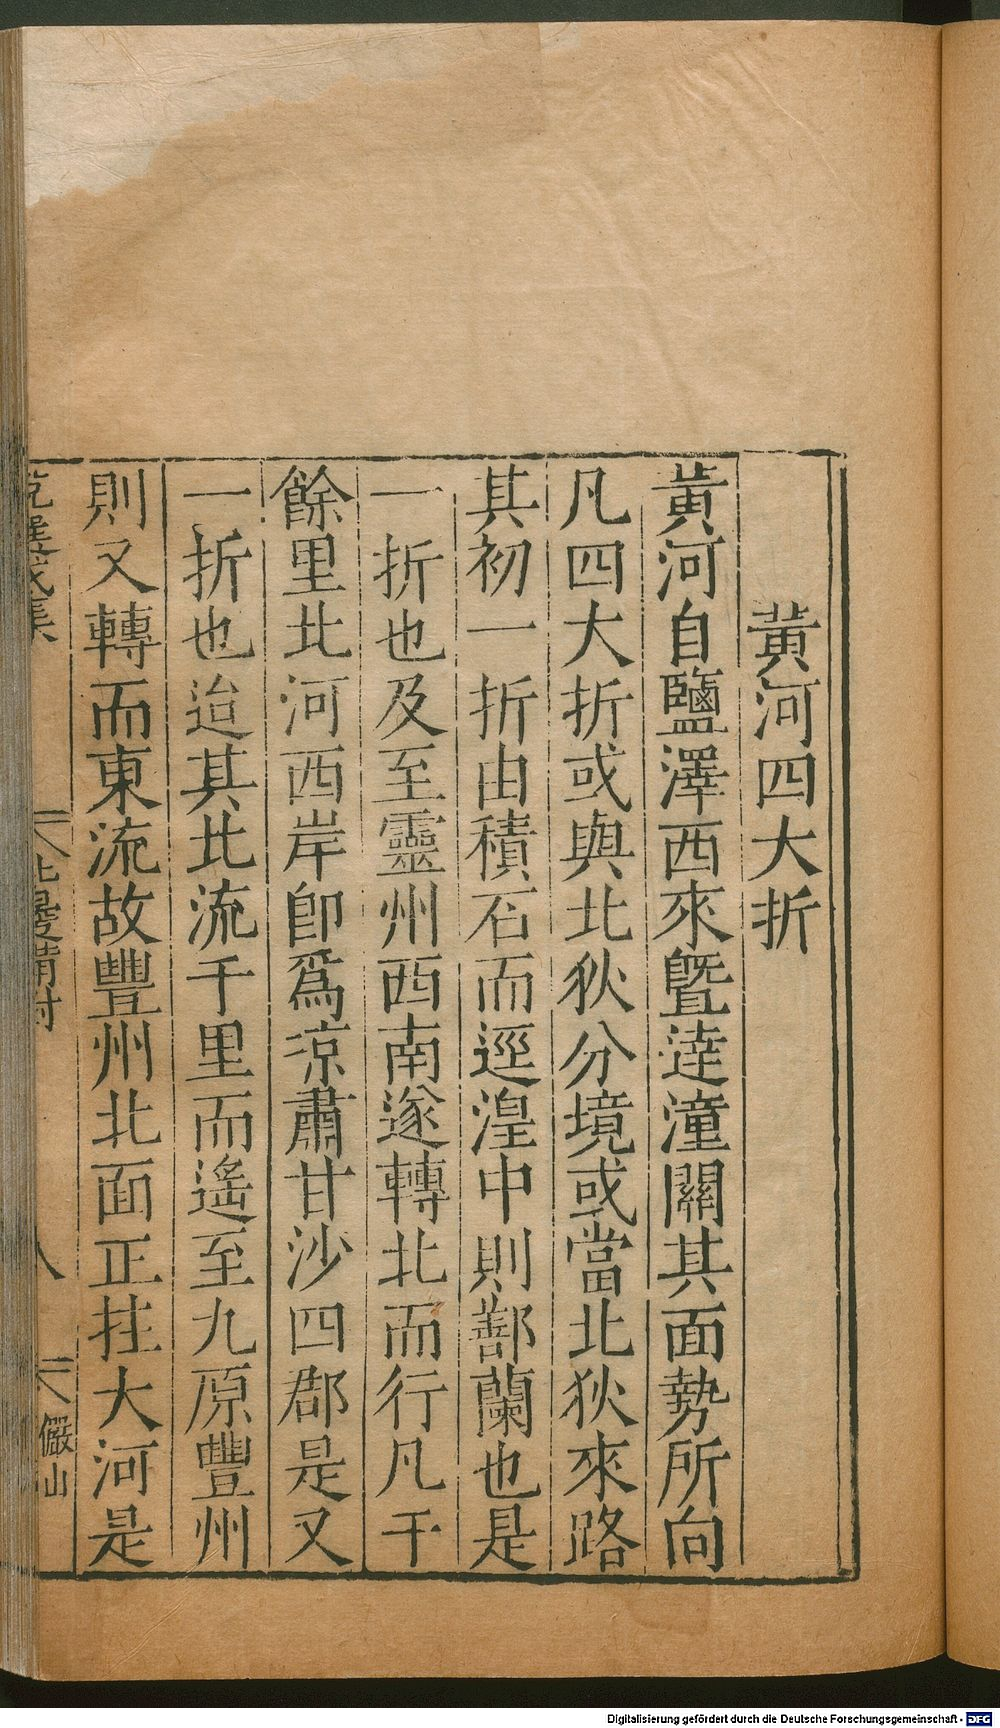 黃河四大折
黃河自鹽澤西來曁達潼關其面勢所向
凡四大折或與北狄分境或當北狄來路
其初一折由積石而逕湟中則鄯蘭也是
一折也及至靈州西南遂轉北而行凡千
餘里北河西岸卽爲凉肅甘沙四郡是又
一折也迨其北流千里而遙至九原豐州
則又轉而東流故豐州北面正拄大河是
北邊備對
八
儼山
Digitalisierung gefördert durch die Deutsche Forschungsgemeinschaft - DFG